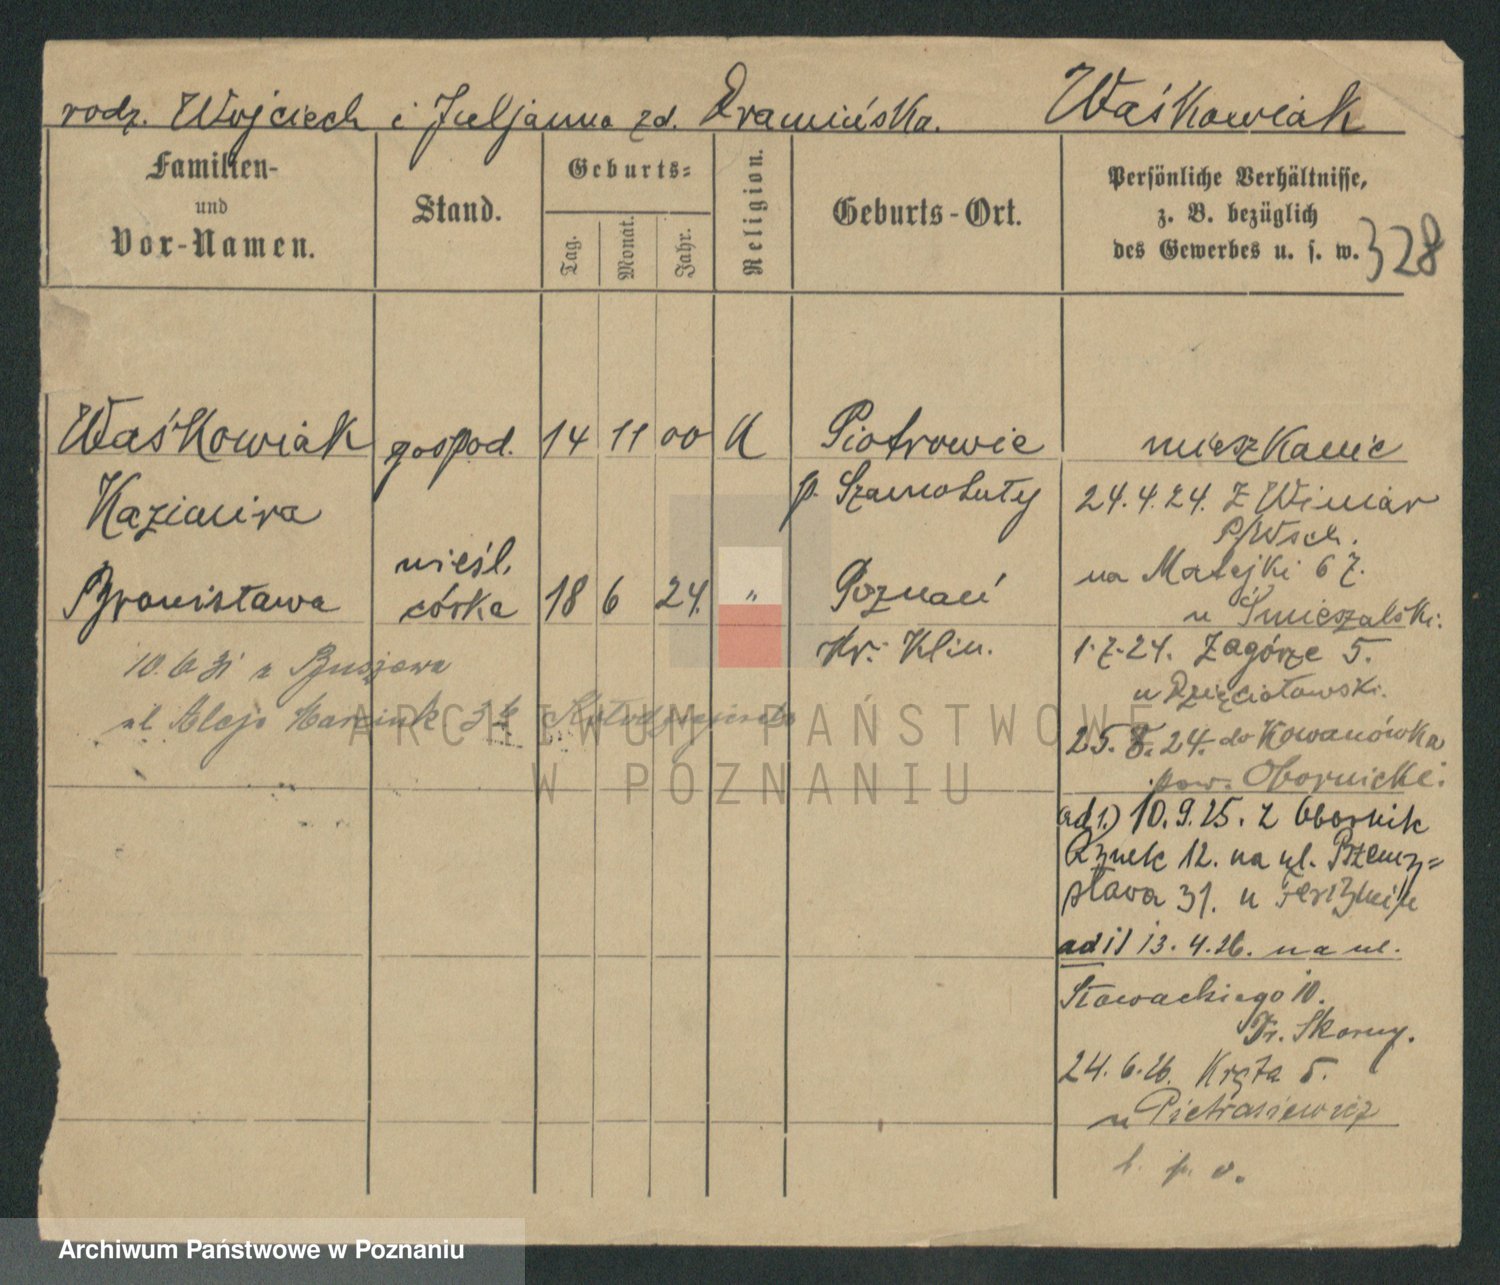 rodz. Wojciech i Juljanna zd. Dramińska. Waśkowiak
Familien-
und
Vor-Namen.
Stand.
Geburts-
Tag.
Monat.
Jahr.
Religion.
Geburts-Ort.
Persönliche Verhältnisse,
z. B. bezüglich
des Gewerbes u. s. w.
328
Waśkowiak gospod. 14 11 00 K Piotrowie mieszkanie
Kazimira p. Szamotuły 24.4.24. Z Winiar
P/Wsch.
nieśl. na Matejki 6
Bronisława córka 18 6 24. " Poznań u Śmieszalski.
Kr. Klin. 1.7.24. Zagórze 5.
10.6.31 z
u Dzięciołowski.
ul Aleje Marcink
25.8.24. do Kowanówka
pow. Obornicki.
ad 1.) 10.9.25. z Obornik
Rynek 12. na ul. Przemy=
sława 31. u
ad 1) 13.4.26. na ul.
Słowackiego 10.
Fr. Skorny.
24.6.26. Kręta 5.
u Pietrasiewicz
ARCHIWUM PAŃSTWOWE
W POZNANIU
Archiwum Państwowe w Poznaniu